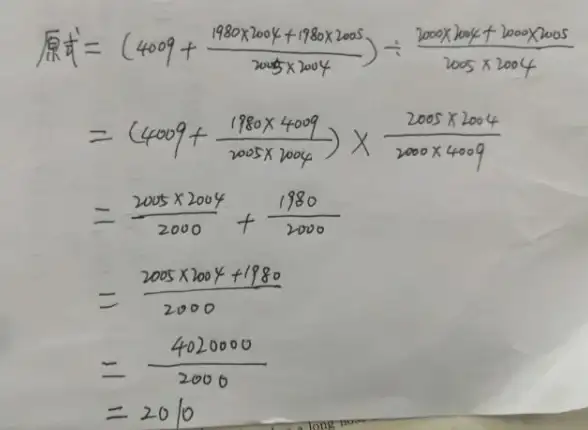 原式 = (4009 + (1980×2004+1980×2005)/(2005×2004)) ÷ (2000×2004+2000×2005)/(2005×2004)
= (4009 + (1980×4009)/(2005×2004)) × (2005×2004)/(2000×4009)
= (2005×2004)/2000 + 1980/2000
= (2005×2004+1980)/2000
= 4020000/2000
= 2010
a long